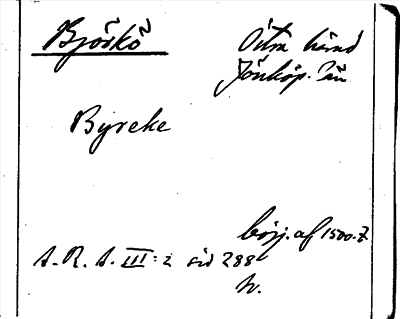 Björkö
Östra härad
Jönköp. län
Byreke
börj. af 1500-t
A. R. A. III: 2 sid 288